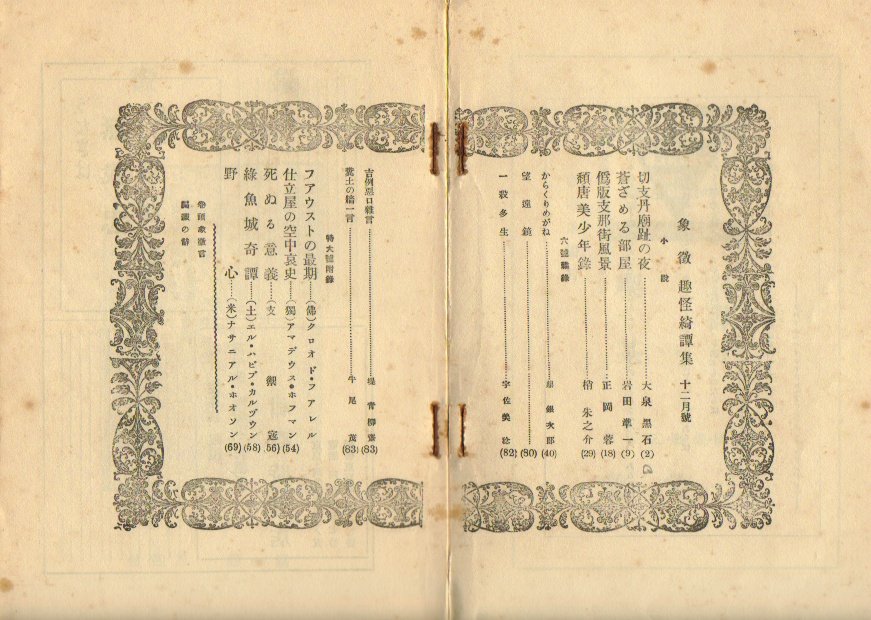 象徴趣怪綺譚集 十二月號
小説
切支丹廟趾の夜……大泉黒石(2)
蒼ざめる部屋……岩田準一(9)
僞版支那街風景……正岡蓉(18)
頽唐美少年錄……梢朱之介(29)
六號雜錄
からくりめがね……銀次郎(40)
望遠鏡……(80)
一殺多生……宇佐美(82)
吉例惡口雜言……堤青柳(83)
糞土の牆一言……牛尾茂(83)
特大號附錄
フアウストの最期……(佛)クロオド・フアレル
仕立屋の空中哀史……(獨)アマデウス・ホフマン(54)
死ぬる意義……(支)寇(56)
綠魚城奇譚……(土)エル・ハビブ・カルブウン(58)
野心……(米)ナサニアル・ホオソン(69)
卷頭象徴言
編輯の